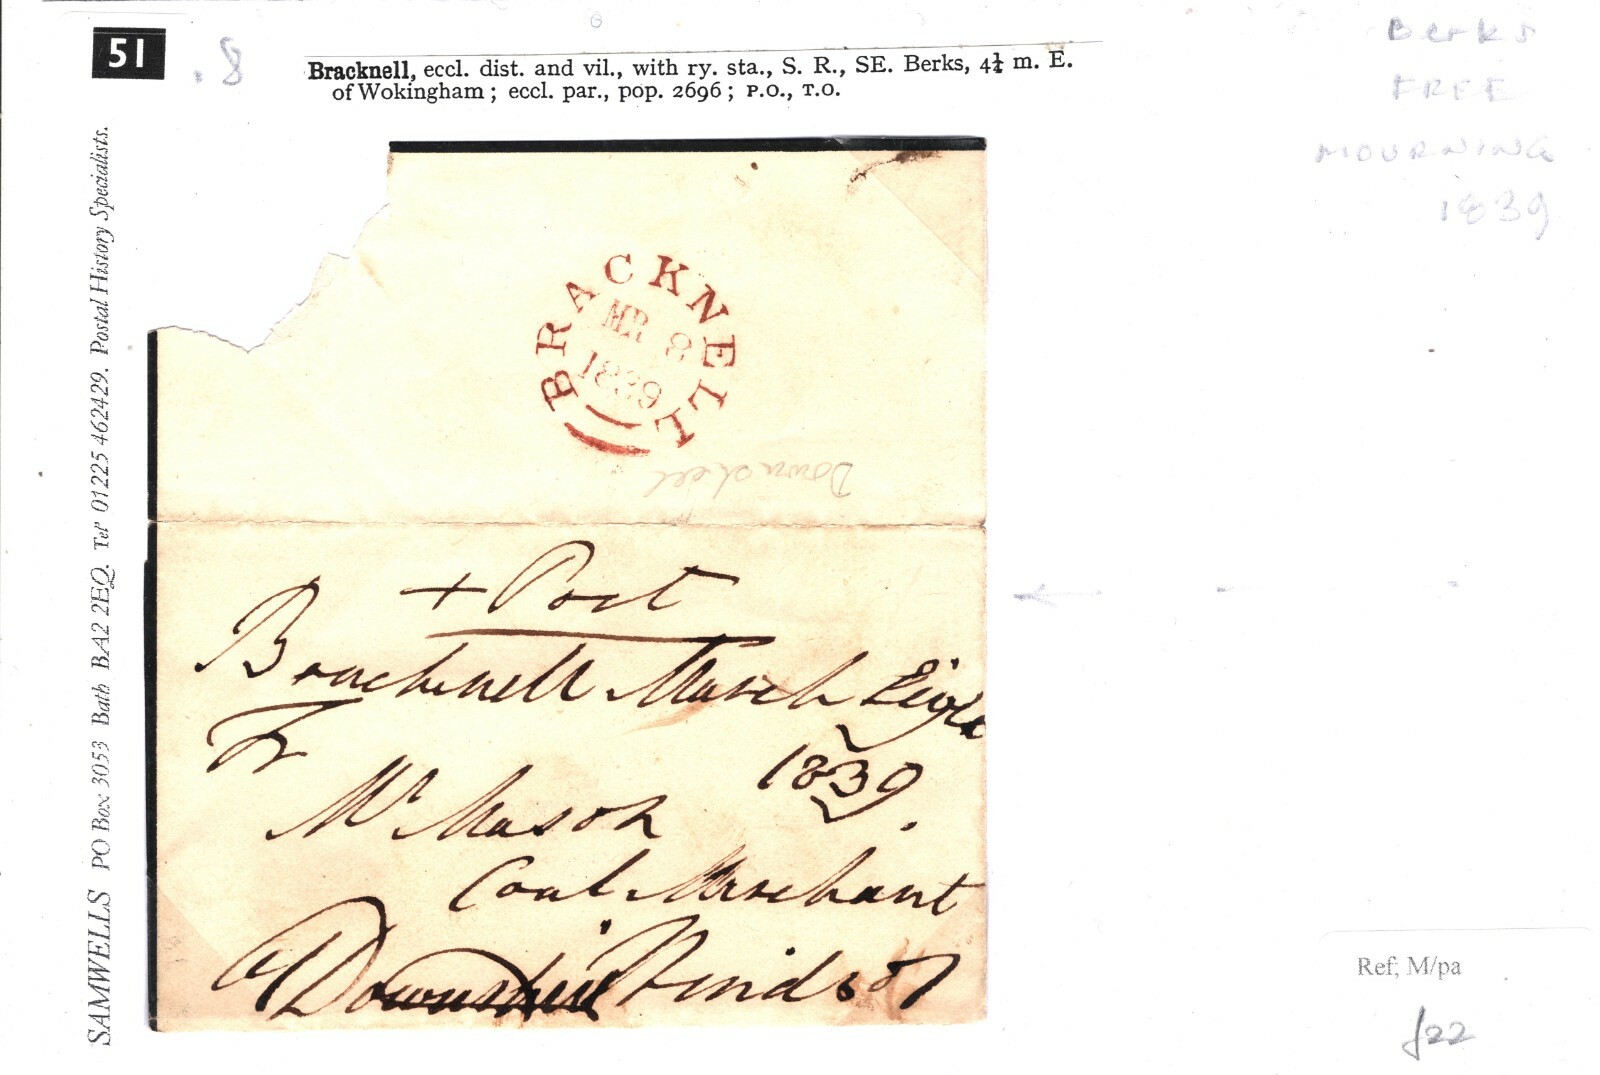 51
.8
Bracknell, eccl. dist. and vil., with ry. sta., S. R., SE. Berks, 4¼ m. E.
of Wokingham; eccl. par., pop. 2696; P.O., T.O.
Berks
FREE
MOURNING
1839
SAMWELLS PO Box 3053 Bath BA2 2EQ. Tel' 01225 462429. Postal History Specialists.
BRACKNELL
MR 8
1839
+ Post
Bracknell March Eight
1839.
Fr
Mr Mason
Coal Merchant
Downshire Windsor
Ref; M/pa
£22